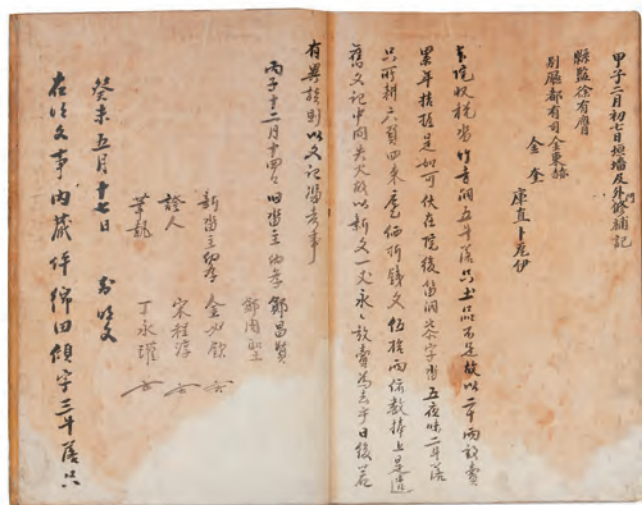 甲子二月初七日垣墻及外門修補記
縣監徐有膺
別廳都有司金東赫
金奎
庫直卜尼伊
本院收稅畓竹音洞五斗落只土品不足故以二十兩放賣
累年拮据是如可伏在院後畓洞字畓五夜味二斗落
只所耕六負四束庫乙価折錢文伍拾兩依數捧上是遣
舊文記中間失火故以新文一丈永永放賣爲去乎日後若
有異談則以文記憑考事
丙子十二月十四日 旧畓主幼學 鄭昌賢
鄭周聖
新畓主幼學 金必欽
證人 宋程淳
筆執 丁永瓘
癸未五月十七日 明文
右明文事內 伏綿田傾字三斗落只